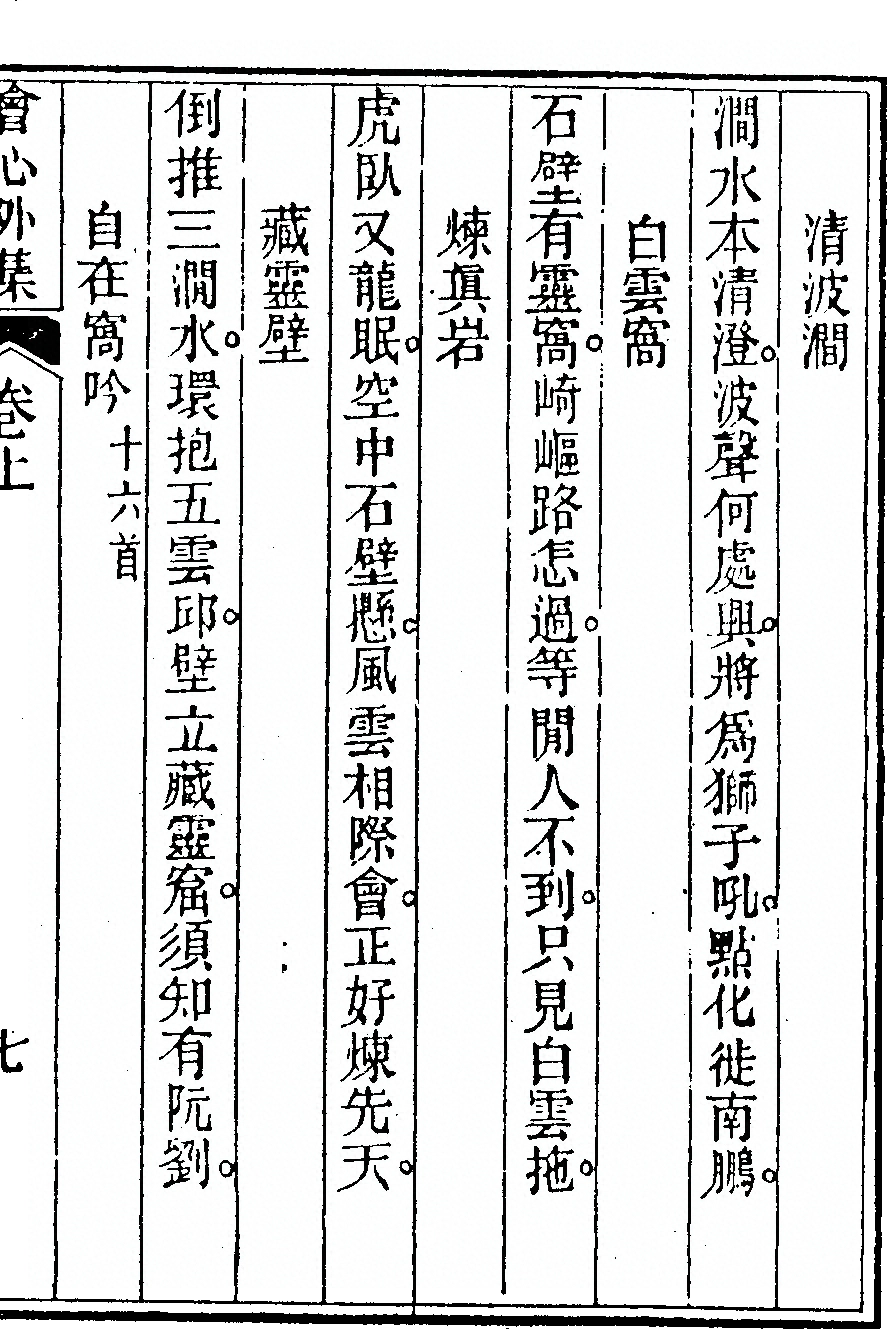 清波澗
澗水本清澄。波聲何處興。將爲獅子吼。點化徙南鵬。
白雲窩
石壁有靈窩。崎嶇路怎過。等閒人不到。只見白雲拖。
煉眞岩
虎臥又龍眠。空中石壁懸。風雲相際會。正好煉先天。
藏靈壁
倒推三澗水。環抱五雲邱。壁立藏靈窟。須知有阮劉。
自在窩吟 十六首
會心外集 卷上 七